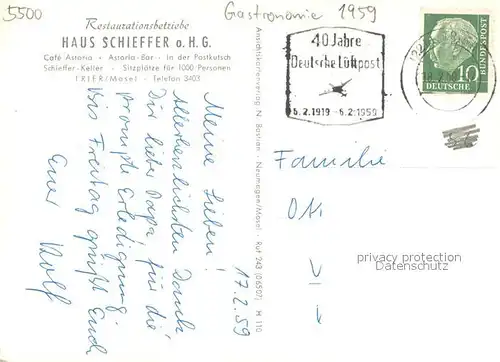 5500
Gastronomie 1959
Restaurationsbetriebe
HAUS SCHIEFFER o. H. G.
Café Astoria - Astoria-Bar - In der Postkutsch
Schieffer-Keller - Sitzplätze für 1000 Personen
TRIER/Mosel - Telefon 3403
Meine Lieben!
Allerherzlichsten Dank
Dir lieber Papa für die
prompte Erledigung.
Bis Freitag grüßt Euch
Euer Rolf
17.2.59
Ansichtskartenverlag N. Bastian - Neumagen/Mosel - Ruf 243 (06507) H 110
40 Jahre
Deutsche Luftpost
5.2.1919 - 6.2.1959
10
DEUTSCHE
BUNDESPOST
Familie
privacy protection
Datenschutz